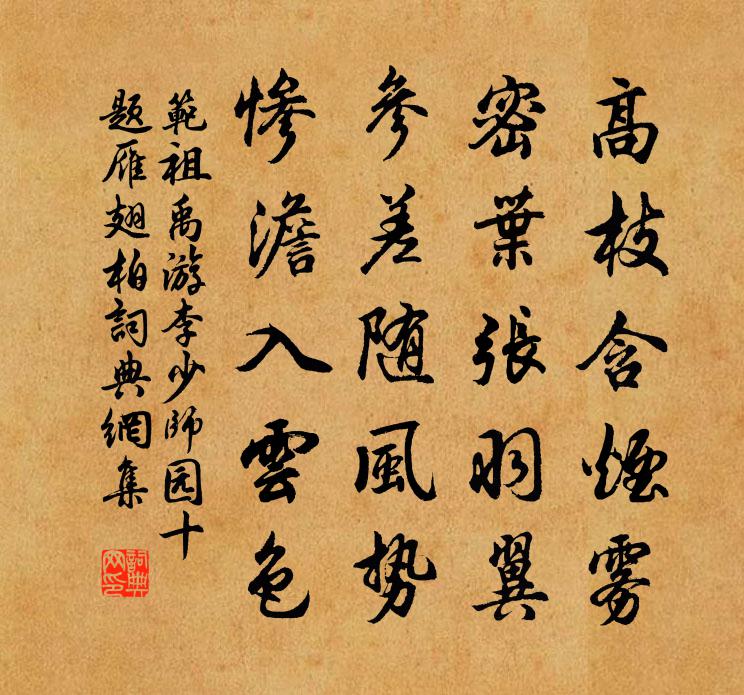 高枝含煙雾
密葉張羽翼
參差随風勢
惨澹入雲色
範祖禹游李少師园十
题雁翅柏詞典網集
詞典网印